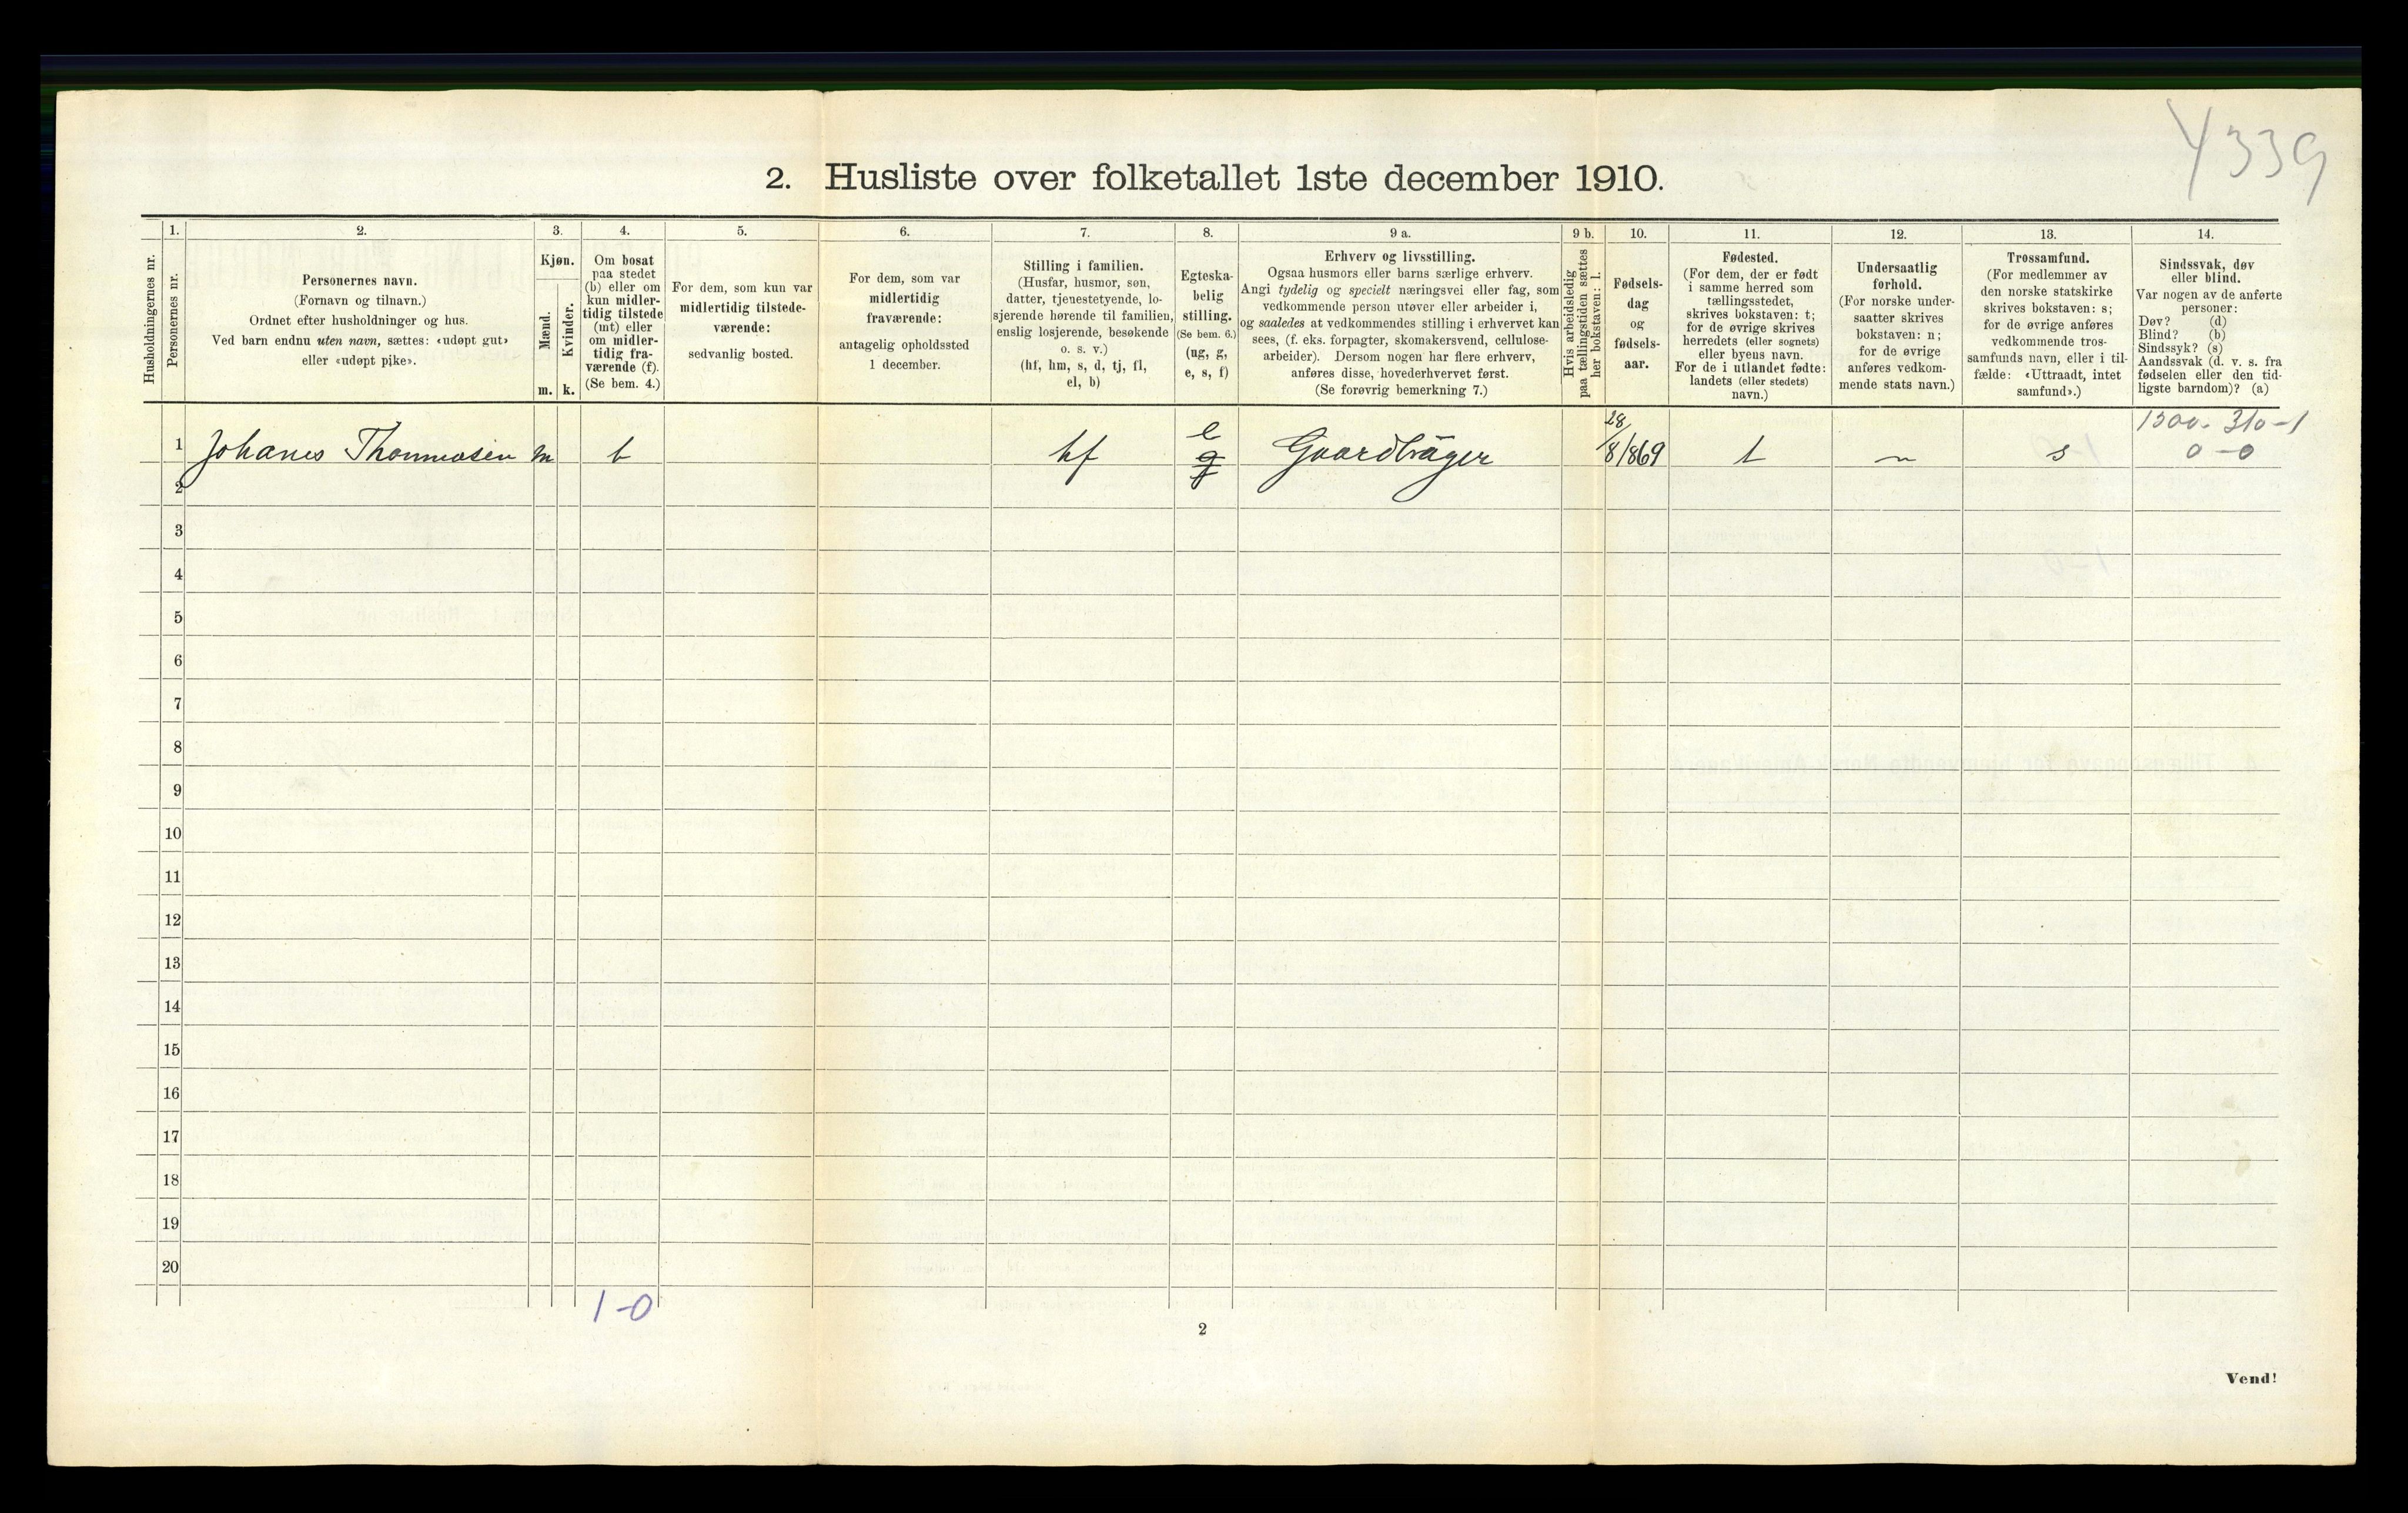 Y339
2. Husliste over folketallet 1ste december 1910.
Husholdningernes nr.
1.
Personernes nr.
2.
Personernes navn.
(Fornavn og tilnavn.)
Ordnet efter husholdninger og hus.
Ved barn endnu uten navn, sættes: «udøpt gut»
eller «udøpt pike».
3.
Kjøn.
Mænd.
m.
Kvinder.
k.
4.
Om bosat
paa stedet
(b) eller om
kun midler-
tidig tilstede
(mt) eller
om midler-
tidig fra-
værende (f).
(Se bem. 4.)
5.
For dem, som kun var
midlertidig tilstede-
værende:
sedvanlig bosted.
6.
For dem, som var
midlertidig
fraværende:
antagelig opholdssted
1 december.
7.
Stilling i familien.
(Husfar, husmor, søn,
datter, tjenestetyende, lo-
sjerende hørende til familien,
enslig losjerende, besøkende
o. s. v.)
(hf, hm, s, d, tj, fl,
el, b)
8.
Egteska-
belig
stilling.
(Se bem. 6.)
(ug, g,
e, s, f)
9 a.
Erhverv og livsstilling.
Ogsaa husmors eller barns særlige erhverv.
Angi tydelig og specielt næringsvei eller fag, som
vedkommende person utøver eller arbeider i,
og saaledes at vedkommendes stilling i erhvervet kan
sees, (f. eks. forpagter, skomakersvend, cellulose-
arbeider). Dersom nogen har flere erhverv,
anføres disse, hovederhvervet først.
(Se forøvrig bemerkning 7.)
9 b.
Hvis arbeidsledig
paa tællingstiden sættes
her bokstaven: l.
10.
Fødsels-
dag
og
fødsels-
aar.
11.
Fødested.
(For dem, der er født
i samme herred som
tællingsstedet,
skrives bokstaven: t;
for de øvrige skrives
herredets (eller sognets)
eller byens navn.
For de i utlandet fødte:
landets (eller stedets)
navn.)
12.
Undersaatlig
forhold.
(For norske under-
saatter skrives
bokstaven: n;
for de øvrige
anføres vedkom-
mende stats navn.)
13.
Trossamfund.
(For medlemmer av
den norske statskirke
skrives bokstaven: s;
for de øvrige anføres
vedkommende tros-
samfunds navn, eller i til-
fælde: «Uttraadt, intet
samfund».)
14.
Sindssvak, døv
eller blind.
Var nogen av de anførte
personer:
Døv? (d)
Blind? (b)
Sindssyk? (s)
Aandssvak (d. v. s. fra
fødselen eller den tid-
ligste barndom)? (a)
1 Johanes Thommasen m b hf e g Gaardbrüger 28/8/869 t n s 1300. 310-1
0-0
2
3
4
5
6
7
8
9
10
11
12
13
14
15
16
17
18
19
20
1-0
2
Vend!